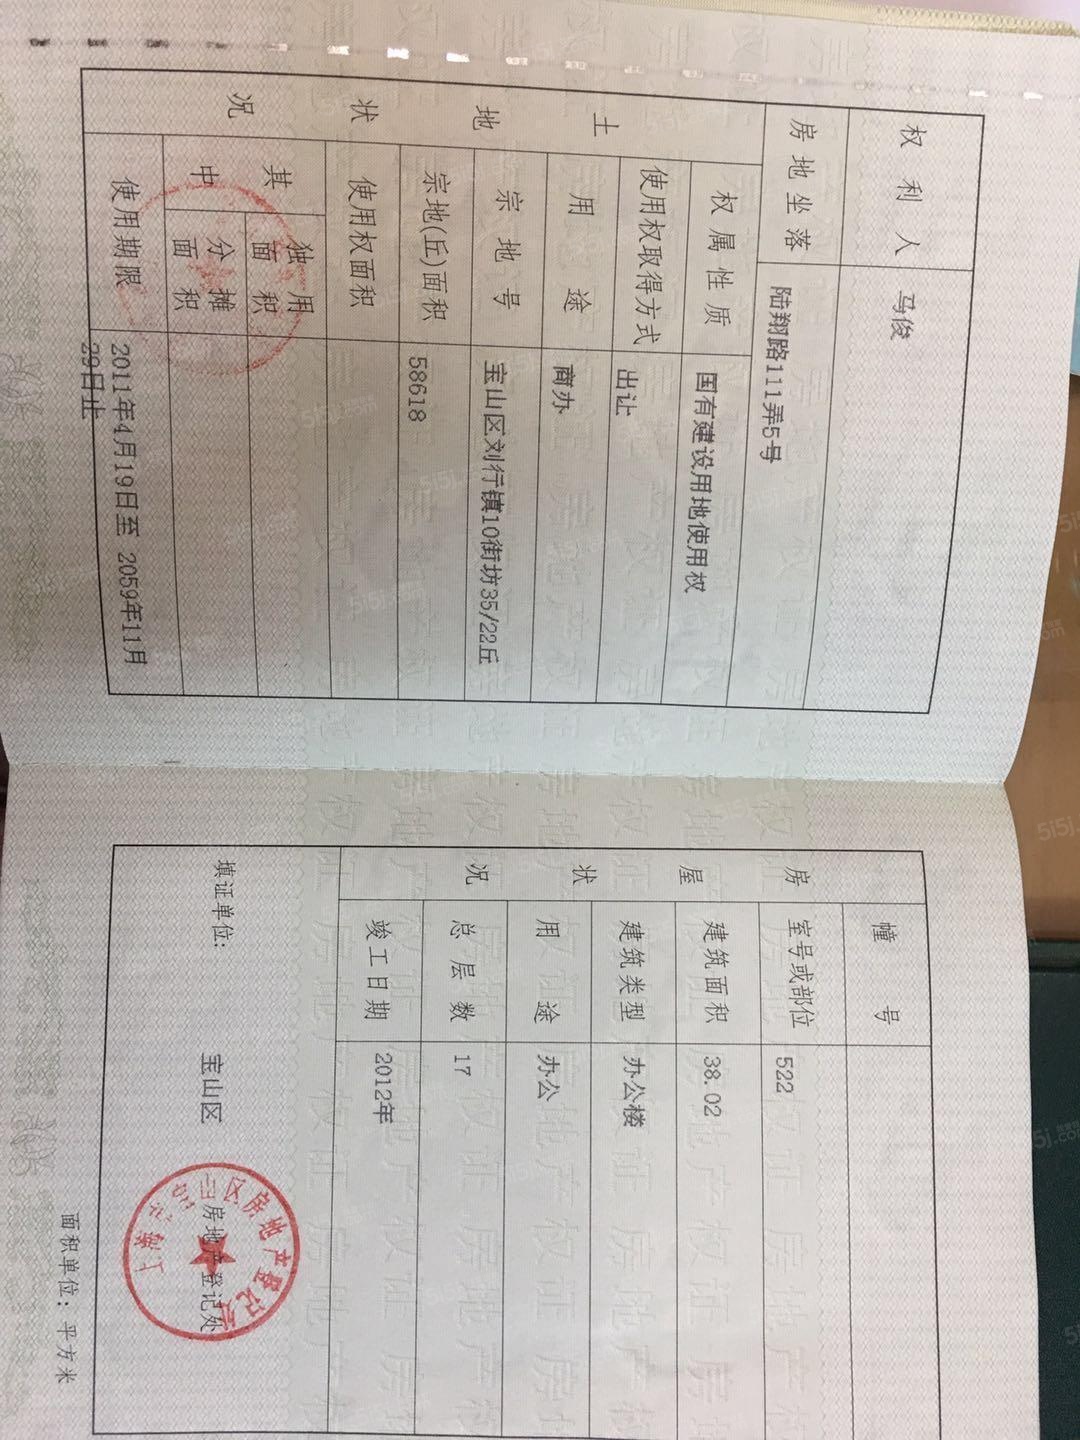 权利人 马俊
房地坐落 陆翔路111弄5号
土地状况
权属性质 国有建设用地使用权
使用权取得方式 出让
用途 商办
宗地号 宝山区刘行镇10街坊35/22丘
宗地(丘)面积 58618
使用权面积
其中
独用面积
分摊面积
使用期限 2011年4月19日至 2059年11月
29日止
幢号
房屋状况
室号或部位 522
建筑面积 38.02
建筑类型 办公楼
用途 办公
总层数 17
竣工日期 2012年
填证单位: 宝山区 房地产登记处
上海市宝山区房地产登记处
面积单位: 平方米
5i5j.com